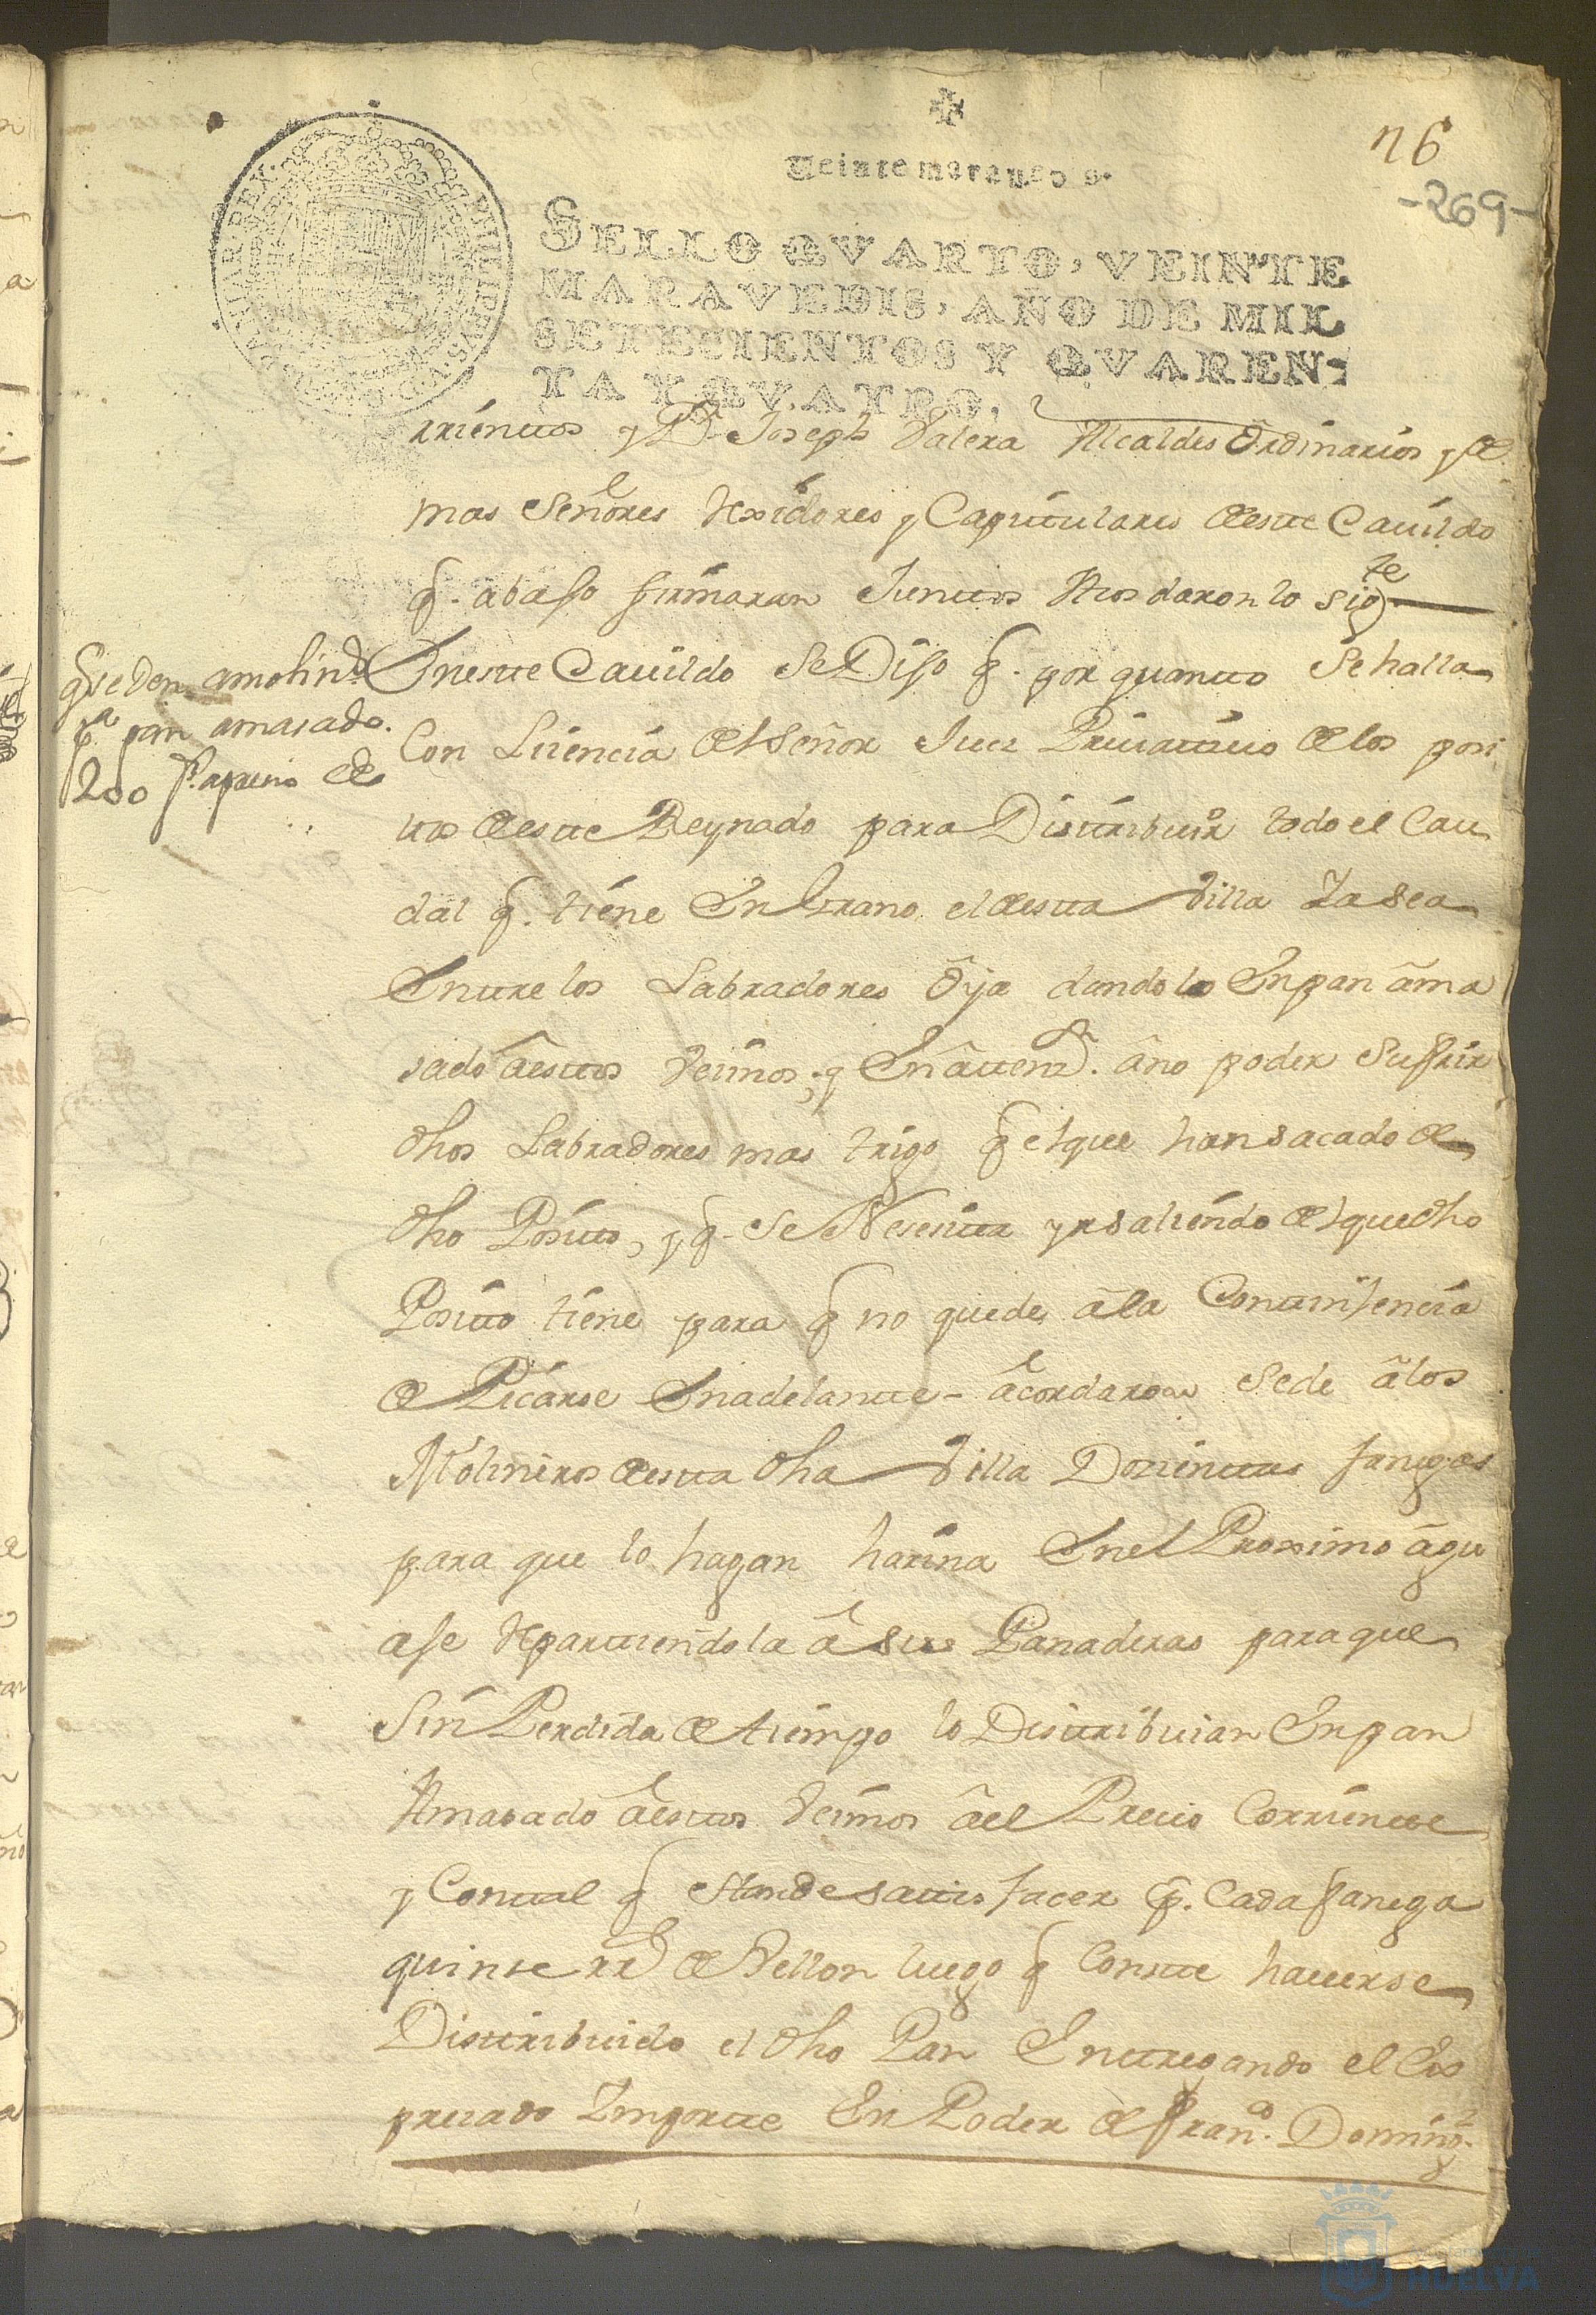 ✠
Veinte maravedis.
26
-269-
SELLO QVARTO, VEINTE
MARAVEDIS, AÑO DE MIL
SETECIENTOS Y QVAREN-
TA Y QVATRO.
rrientos y Dn Joseph Valera Alcaldes ordinarios y de
mas Señores rexidores y Capitulares deste Cavildo
q. abajo firmaran Juntos Acordaron lo sigte
q se den a molind
pa pan amasado
200 f.
En este Cavildo Se Dijo q. por quanto Se halla
Con Lisencia del Señor Juez Privativo de los posi
tos deste Reynado para Distribuir todo el Cau
dal q. tiene En Grano el desta Villa Ya sea
Entre los Labradores ô ya dandolo En pan âma
sado âestos Vecinos, y En âtenon. âno poder Sufrir
dhos Labradores mas trigo q el que han sacado de
dho Posito, y q. se Nesesita yr saliendo del que dho
Posito tiene para q no quede â la Continjencia
de Picarse En adelante - âcordaron Se de â los
Molineros desta dha Villa Dozientas fanegas
para que lo hagan harina En el Proximo âgu
aje repartiendola â sus Panaderas para que
Sin Perdida de tiempo lo Distribuian En pan
Amasado âestos Vecinos âel Precio Corriente
y Con tal q Han de satisfacer p. Cada fanega
quinse rrs de Vellon luego q Conste haverse
Distribuido el dho Pan Entregando el Ex
presado Importe En Poder de Franco. Doming
HUELVA